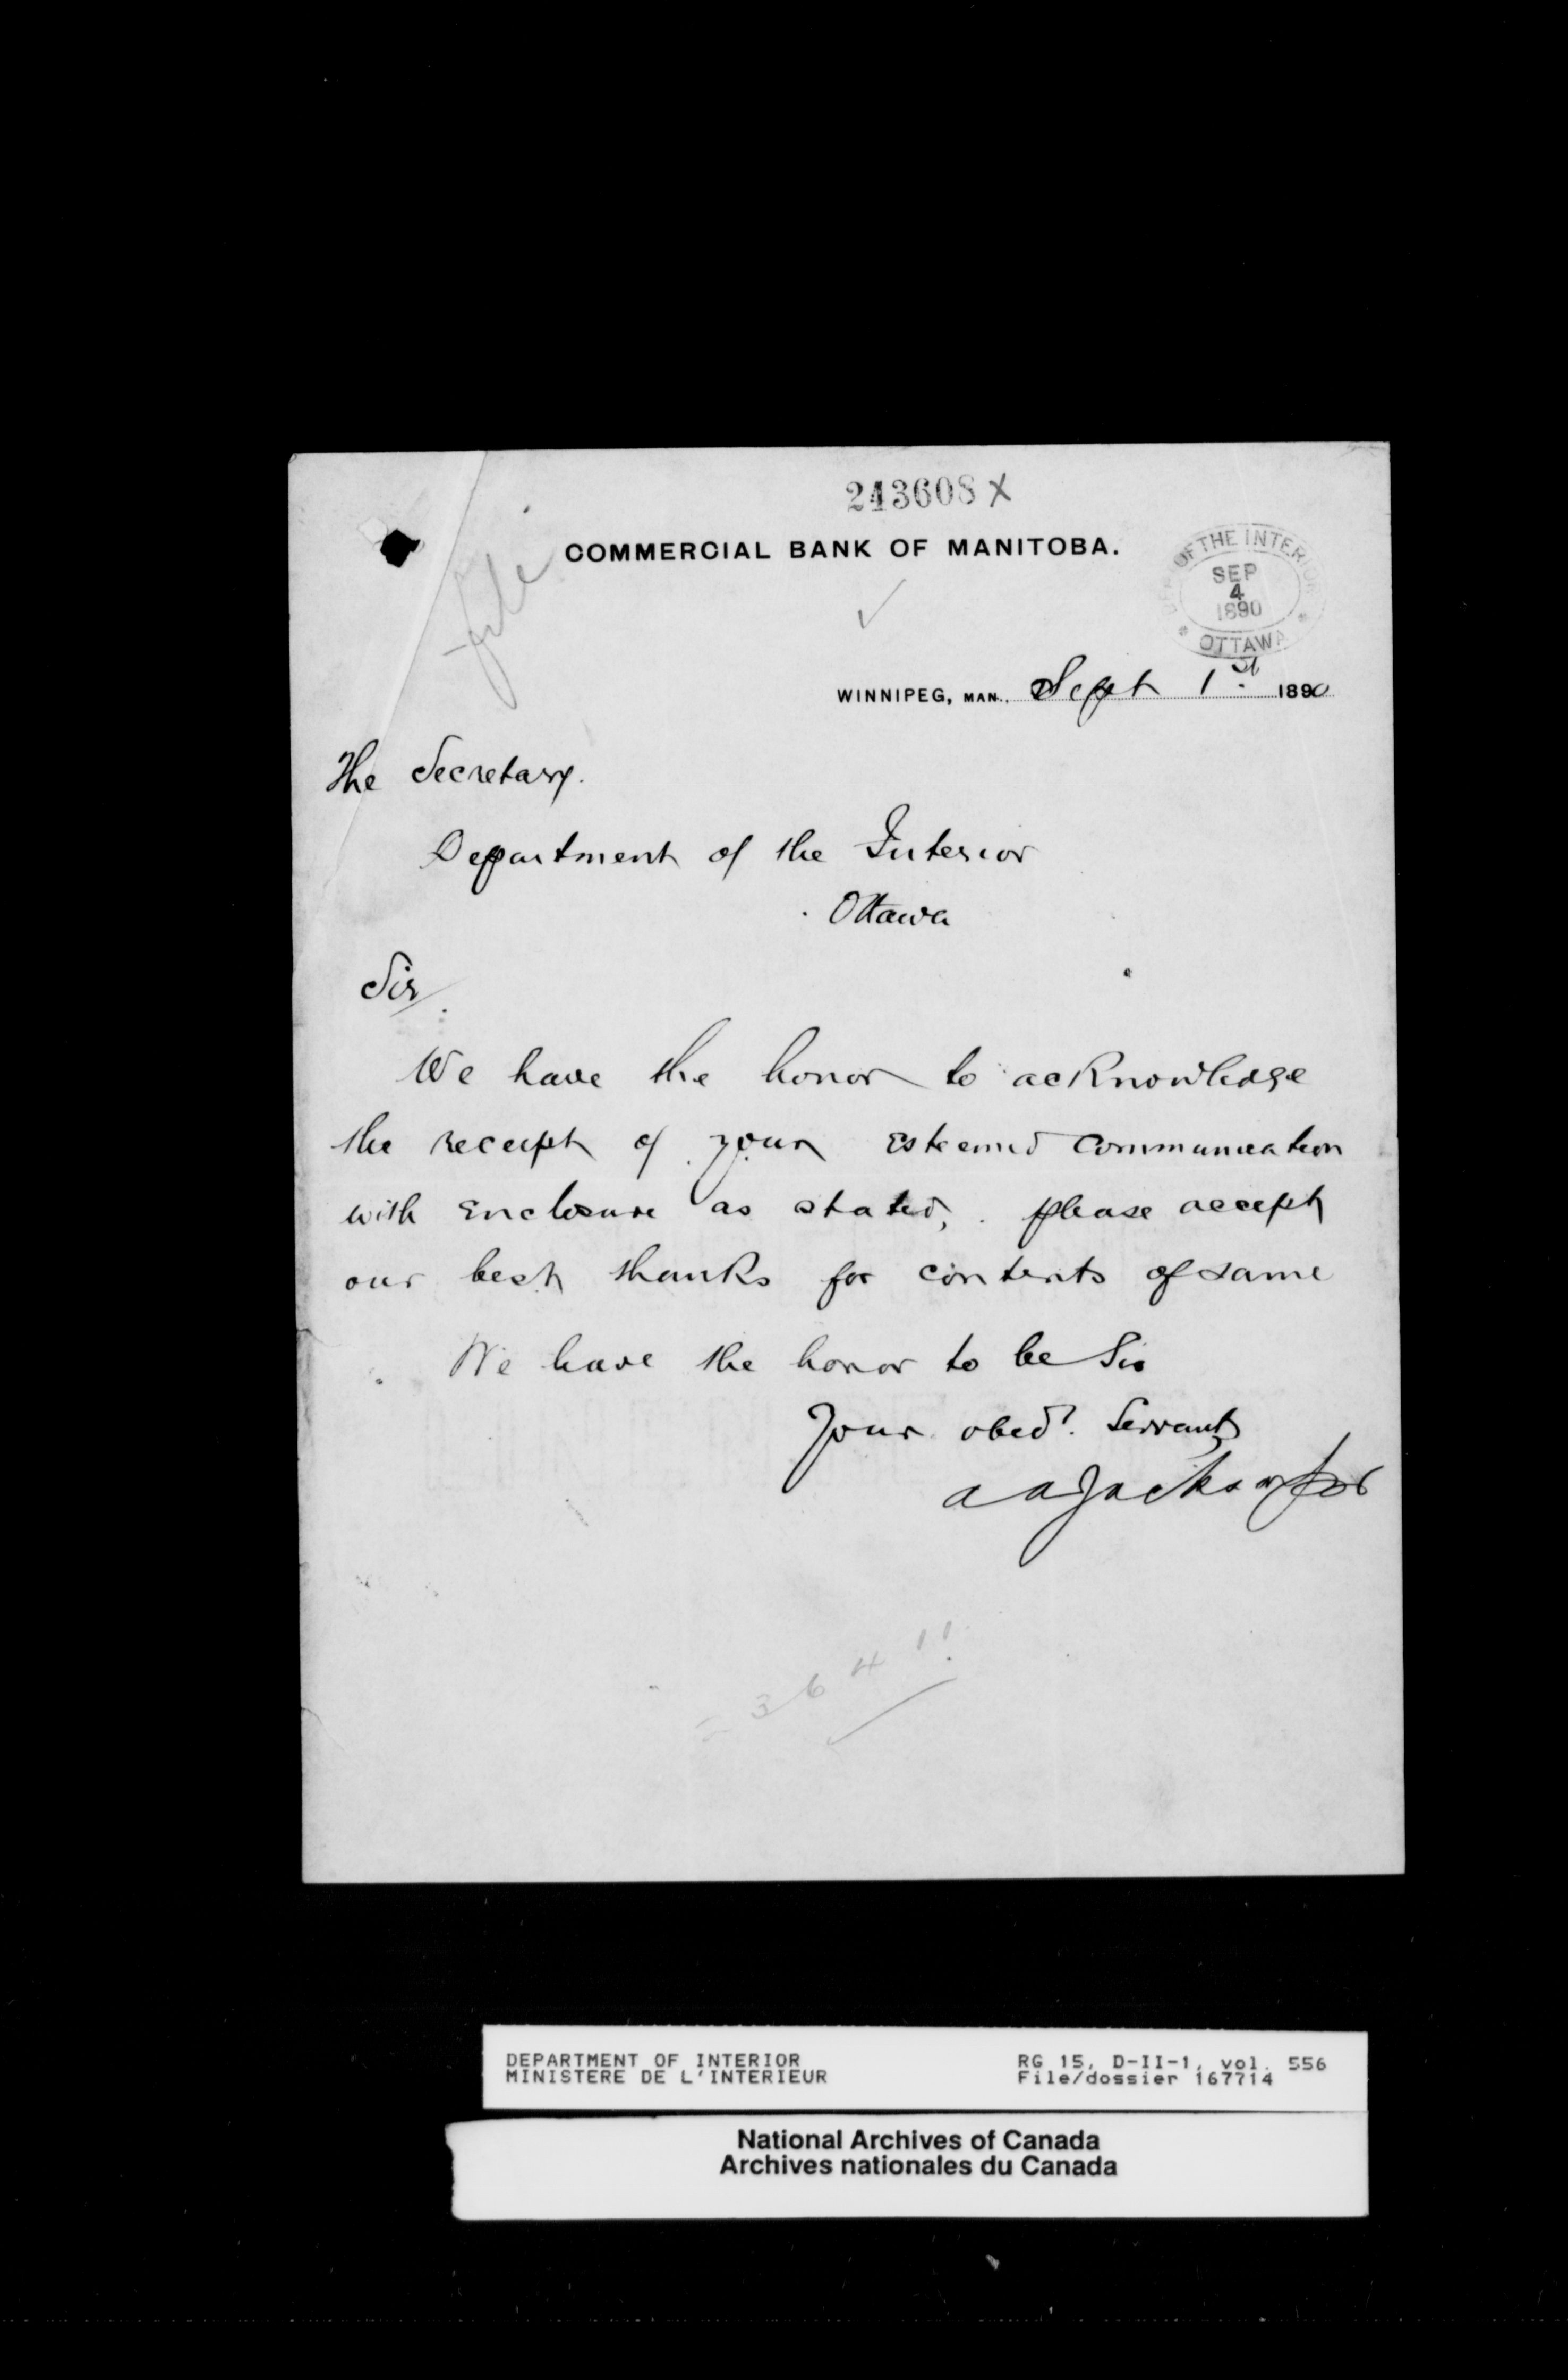 243608 X
COMMERCIAL BANK OF MANITOBA.
file
OF THE INTERIOR
SEP
4
1890
OTTAWA
WINNIPEG, MAN., Sept 1st 1890
The Secretary.
Department of the Interior
Ottawa
Sir
We have the honor to acknowledge
the receipt of your esteemed communication
with enclosure as stated, please accept
our best thanks for contents of same
We have the honor to be Sir
Your obedt. Servants
a a Jackson
3 6 4 1 1
DEPARTMENT OF INTERIOR
MINISTERE DE L'INTERIEUR
RG 15, D-II-1, vol. 556
File/dossier 167714
National Archives of Canada
Archives nationales du Canada